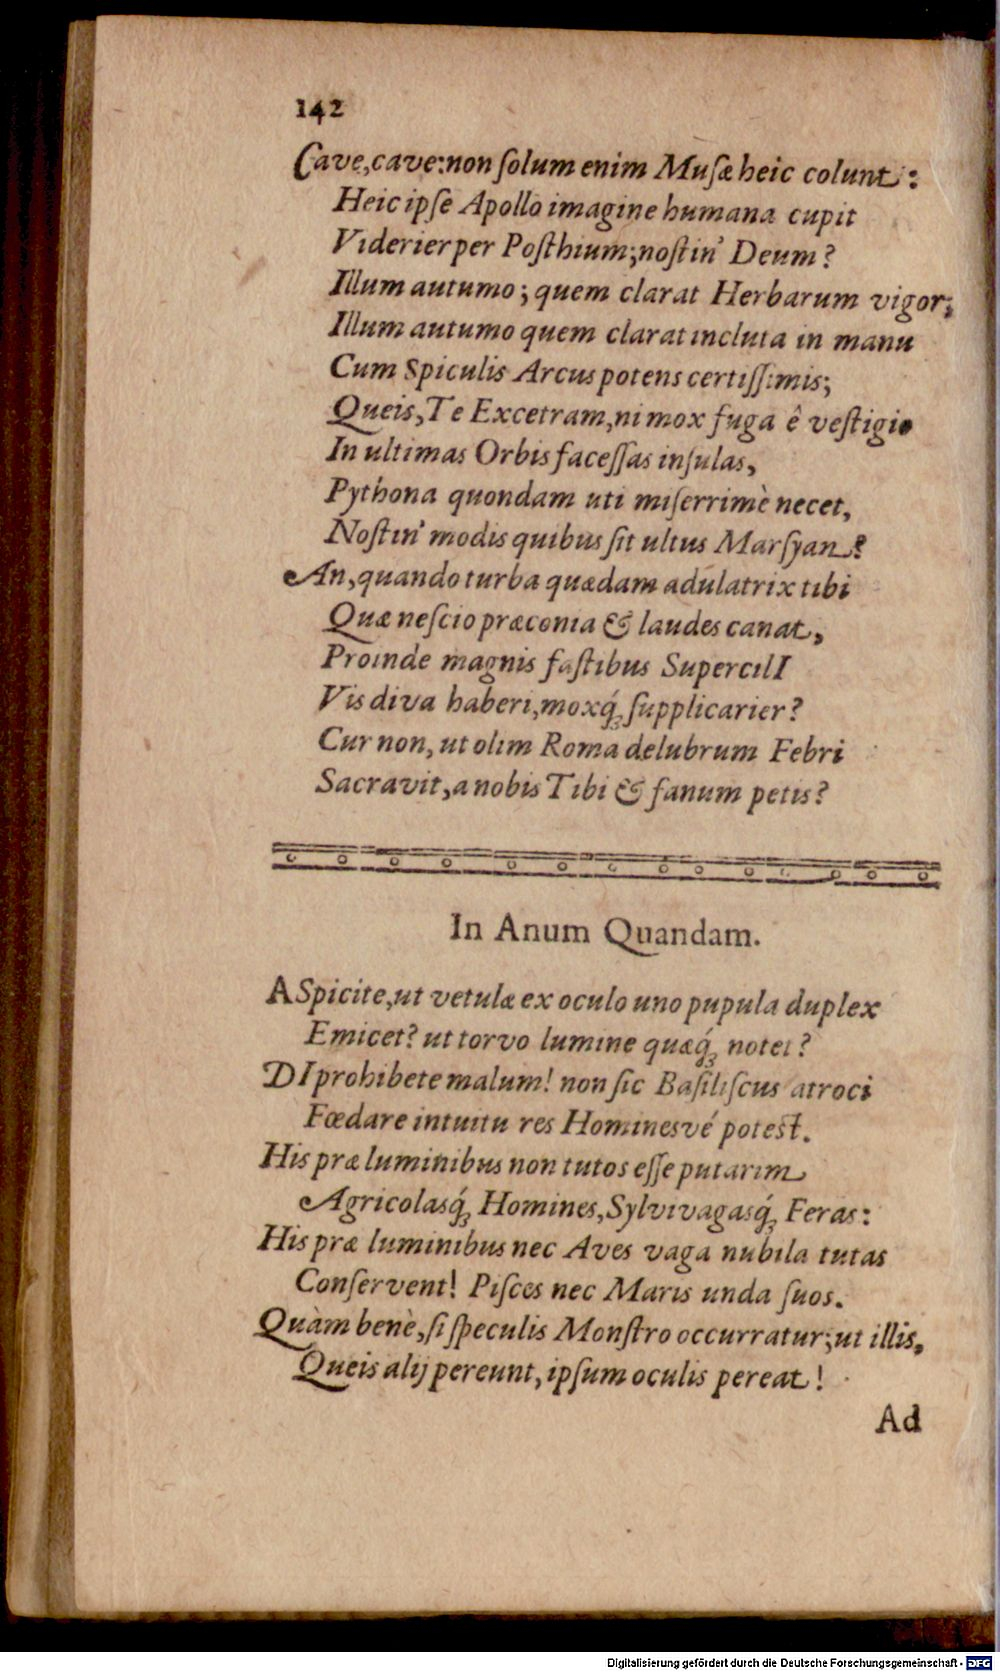 142
Cave, cave: non ſolum enim Muſæ heic colunt:
Heic ipſe Apollo imagine humana cupit
Viderier per Poſthium; noſtin' Deum?
Illum autumo; quem clarat Herbarum vigor;
Illum autumo quem clarat incluta in manu
Cum Spiculis Arcus potens certiſſimis;
Queis, Te Excetram, ni mox fuga ê veſtigio
In ultimas Orbis faceſſas inſulas,
Pythona quondam uti miſerrimè necet,
Noſtin' modis quibus ſit ultus Marſyan?
An, quando turba quædam adulatrix tibi
Quæ neſcio præconia & laudes canat,
Proinde magnis faſtibus SupercilI
Vis diva haberi, moxq́ꝫ ſupplicarier?
Cur non, ut olim Roma delubrum Febri
Sacravit, a nobis Tibi & fanum petis?
In Anum Quandam.
ASpicite, ut vetulæ ex oculo uno pupula duplex
Emicet? ut torvo lumine quæq́ꝫ notet?
DI prohibete malum! non ſic Baſiliſcus atroci
Fœdare intuitu res Hominesvé poteſt.
His præ luminibus non tutos eſſe putarim
Agricolasq́ꝫ Homines, Sylvivagasq́ꝫ Feras:
His præ luminibus nec Aves vaga nubila tutas
Conſervent! Piſces nec Maris unda ſuos.
Quàm benè, ſi ſpeculis Monſtro occurratur; ut illis,
Queis alij pereunt, ipſum oculis pereat!
Ad
Digitalisierung gefördert durch die Deutsche Forschungsgemeinschaft - DFG